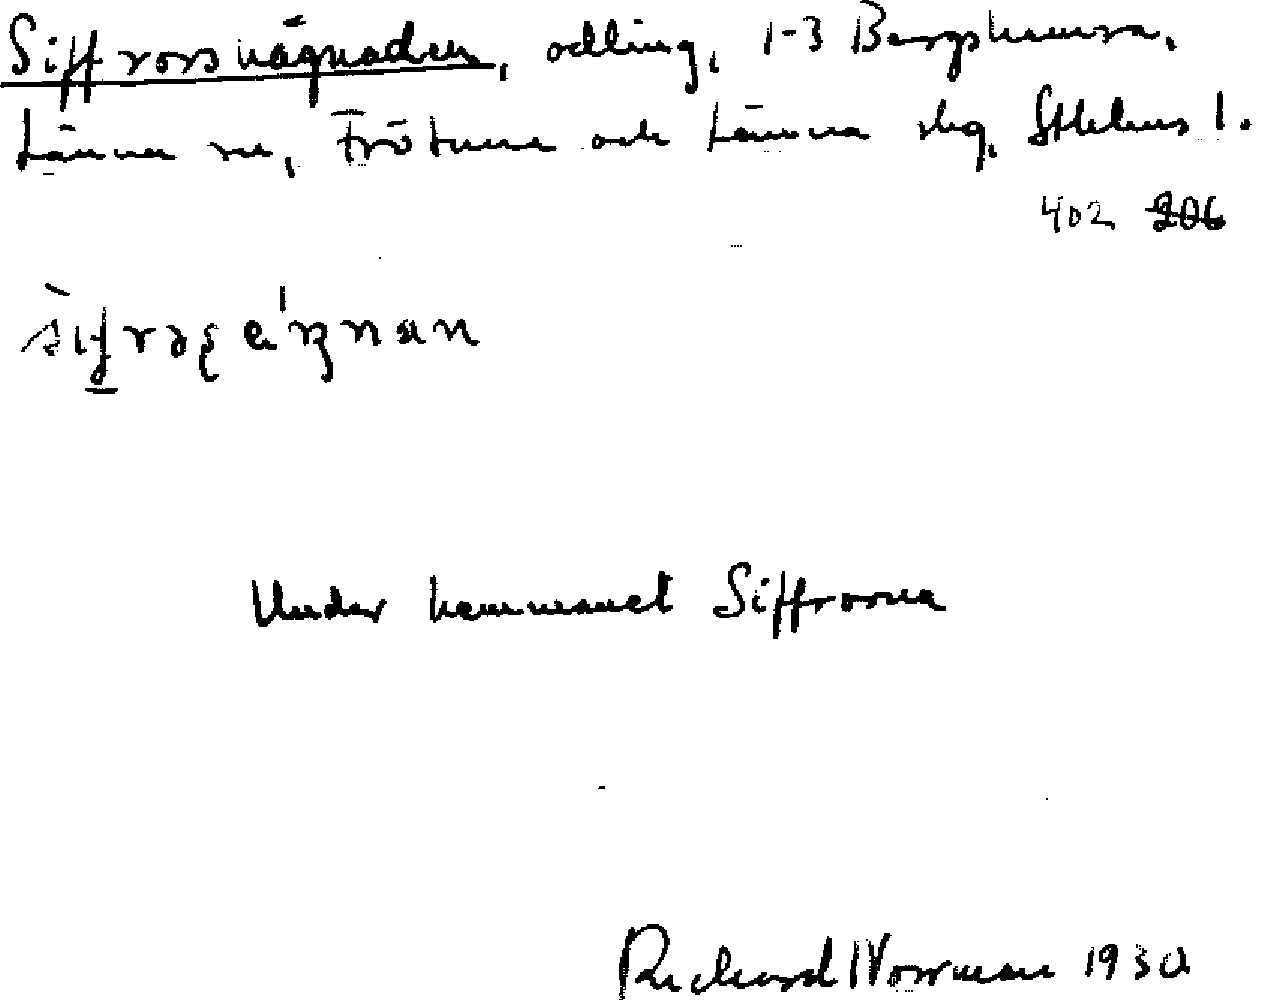 Siffrorshägnaden, odling, 1-3 Bergshamra,
Länna sn, Frötuna och Länna skg, Sthlms l.
402 206
Under hemmanet Siffrorna
Richard Norrman 1930